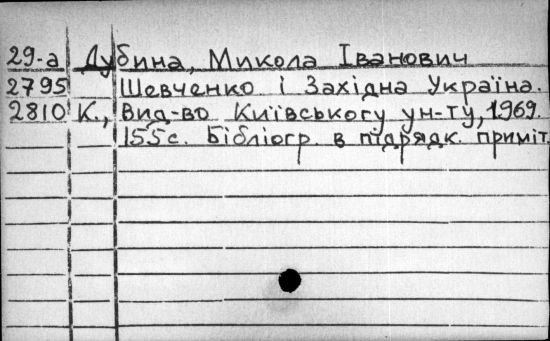 29-а Дубина, Микола Іванович
2795 Шевченко і Західна Україна.
2810 К., Вид-во Київського ун-ту, 1969.
155с. Бібліогр. в підрядк. приміт.